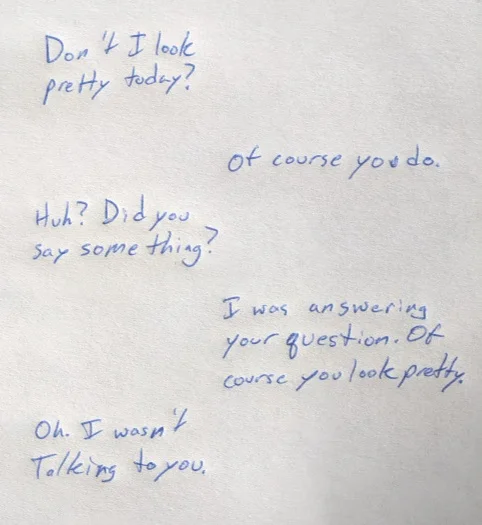 Don't I look
pretty today?
Of course you do.
Huh? Did you
say something?
I was answering
your question. Of
course you look pretty.
Oh. I wasn't
Talking to you.